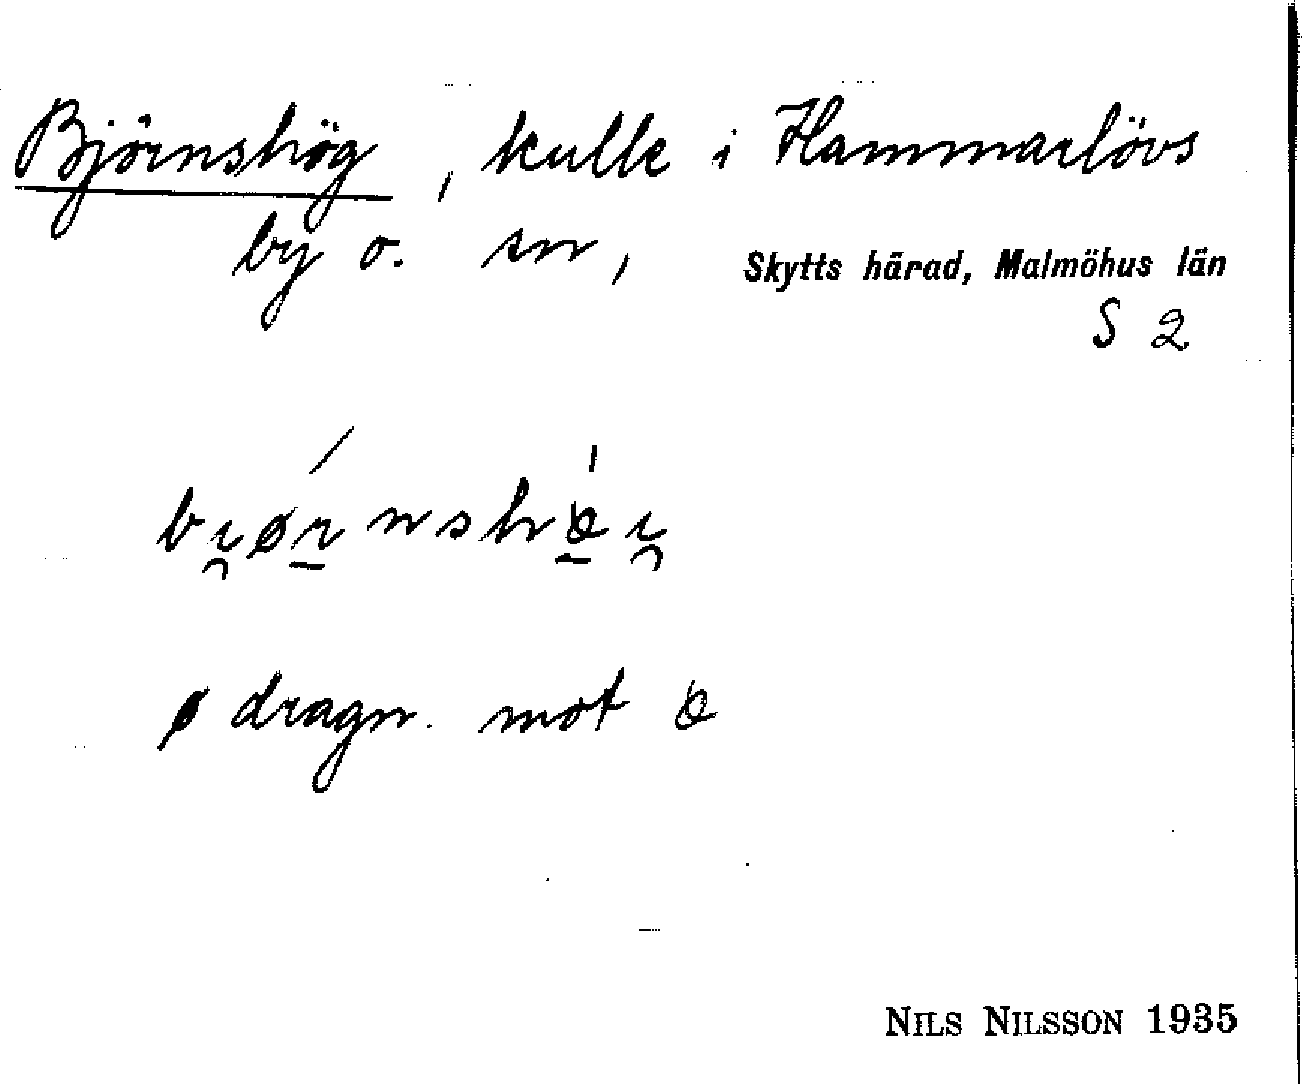 Björnshög, kulle i Hammarlövs
by o. sn, Skytts härad, Malmöhus län
S 2
bi̯ør̠nshó̠i̯
ø dragn. mot
NILS NILSSON 1935